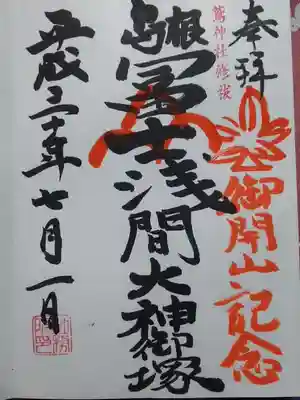 奉拝
鷲神社修祓
御開山記念
島根富士浅間大神御塚
平成三十年七月一日